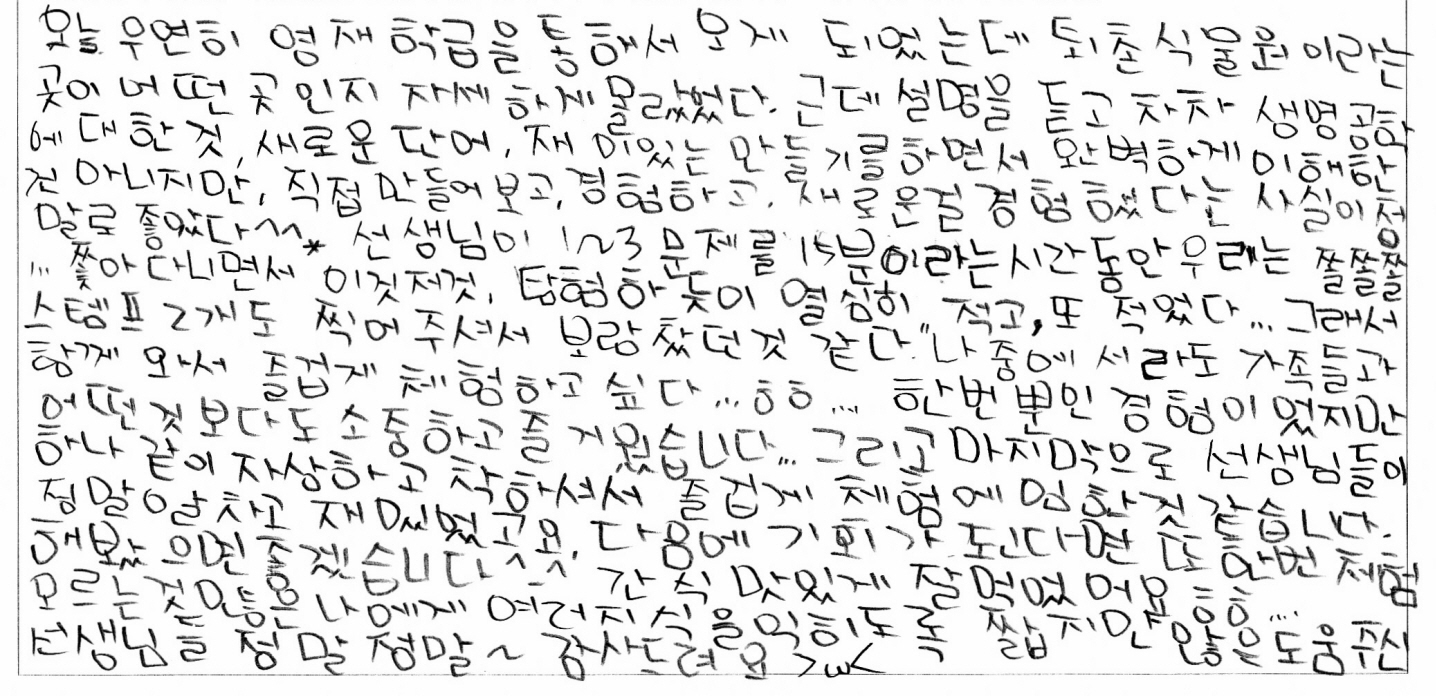 오늘 우연히 영재학급을 통해서 오게 되었는데 퇴촌식물원이라는
곳이 어떤 곳인지 자세하게 몰랐었다. 근데 설명을 듣고 차차 생명공학
에 대한 것, 새로운 단어, 재미있는 만들기를하면서 완벽하게 이해한
건 아니지만, 직접 만들어보고, 경험하고, 새로운걸 경험했다는 사실이 정
말로 좋았다^^* 선생님이 1~3 문제를 15분이라는 시간동안 우리는 쫄쫄쫄
... 쫓아다니면서 이것저것, 탐험하듯이 열심히 적고, 또 적었다... 그래서
스템프 2개도 찍어주셔서 보람찼던것 같다." 나중에 서라도 가족들과
함께 와서 즐겁게 체험하고 싶다...ㅎㅎ... 한번뿐인 경험이었지만
어떤것보다도 소중하고 즐거웠습니다... 그리고 마지막으로 선생님들이
하나같이 자상하고 착하셔서 즐겁게 체험에 임한것 같습니다.
정말 알차고 재미있었고요, 다음에 기회가 된다면 또 한번 체험
해봤으면 좋겠습니다^^ 간식 맛있게 잘먹었어요 흐흐...
모르는것만은 나에게 여러지식을익히도록 짧지만 않은 도움주신
선생님들 정말 정말~ 감사드려요 >ω<